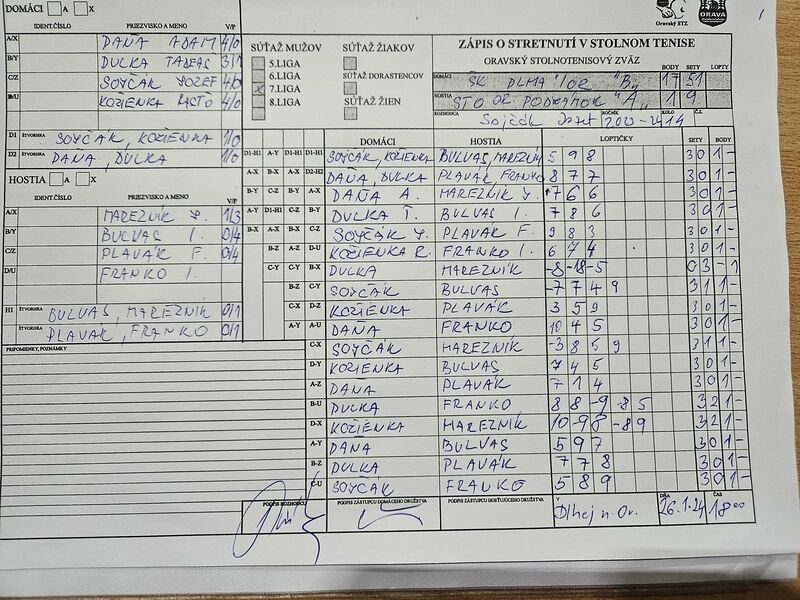 DOMÁCI A X
IDENT.ČÍSLO PRIEZVISKO A MENO V/P
A/X DAŇA ADAM 4/0
B/Y DULKA TADEÁŠ 3/1
C/Z SOJČÁK JOZEF 4/0
KOŽIENKA RASŤO 4/0
D1 ŠTVORHRA SOJČÁK, KOŽIENKA 1/0
D2 ŠTVORHRA DAŇA, DULKA 1/0
HOSTIA A X
IDENT.ČÍSLO PRIEZVISKO A MENO V/P
A/X MAREZNÍK J. 1/3
B/Y BULVAS I. 0/4
C/Z PLAVÁK F. 0/4
D/U FRANKO I.
H1 ŠTVORHRA BULVAS, MAREZNÍK 0/1
ŠTVORHRA PLAVÁK, FRANKO 0/1
PRIPOMIENKY, POZNÁMKY
SÚŤAŽ MUŽOV
5.LIGA
6.LIGA
x 7.LIGA
8.LIGA
SÚŤAŽ ŽIAKOV
SÚŤAŽ DORASTENCOV
SÚŤAŽ ŽIEN
Oravský STZ
ORAVA
ZÁPIS O STRETNUTÍ V STOLNOM TENISE
ORAVSKÝ STOLNOTENISOVÝ ZVÄZ
BODY SETY LOPTY
DOMÁCI "B" 17 51
HOSTIA STO OR. PODZÁMOK "A" 1 9
ROZHODCA Sojčák Jozef ROČNÍK KOLO 14 Č.Z.
DOMÁCI HOSTIA LOPTIČKY SETY BODY
D1-H1 A-Y D1-H1 D1-H1 SOJČÁK, KOŽIENKA BULVAS, MAREZNÍK 5 9 8 3 0 1 -
A-X B-X A-X D2-H2 DAŇA, DULKA PLAVÁK FRANKO 8 7 7 3 0 1 -
B-Y C-Z B-Y A-X DAŇA A. MAREZNÍK J. 7 6 6 3 0 1 -
A-Y D1-H1 C-Z B-Y DULKA T. BULVAS I. 7 8 6 3 0 1 -
B-X A-X A-Y C-Z SOJČÁK J. PLAVÁK F. 9 8 3 3 0 1 -
B-Z A-Z D-U KOŽIENKA R. FRANKO I. 6 7 4 3 0 1 -
C-Y C-Y B-X DULKA MAREZNÍK -8 -18 -5 0 3 - 1
B-Z C-Y SOJČÁK BULVAS -7 7 4 9 3 1 1 -
C-X D-Z KOŽIENKA PLAVÁK 3 5 9 3 0 1 -
A-Y A-U DAŇA FRANKO 10 4 5 3 0 1 -
C-X SOJČÁK MAREZNÍK -3 8 5 9 3 1 1 -
D-Y KOŽIENKA BULVAS 7 4 5 3 0 1 -
A-Z DAŇA PLAVÁK 7 1 4 3 0 1 -
B-U DULKA FRANKO 8 8 -9 -8 5 3 2 1 -
D-X KOŽIENKA MAREZNÍK 10 -9 8 -8 9 3 2 1 -
A-Y DAŇA BULVAS 5 9 7 3 0 1 -
B-Z DULKA PLAVÁK 7 7 8 3 0 1 -
C-U SOJČÁK FRANKO 5 8 9 3 0 1 -
PODPIS ROZHODCU PODPIS ZÁSTUPCU DOMÁCEHO DRUŽSTVA PODPIS ZÁSTUPCU HOSŤUJÚCEHO DRUŽSTVA V Dlhej n. Or. DŇA 26.1.24 ČAS 18 00